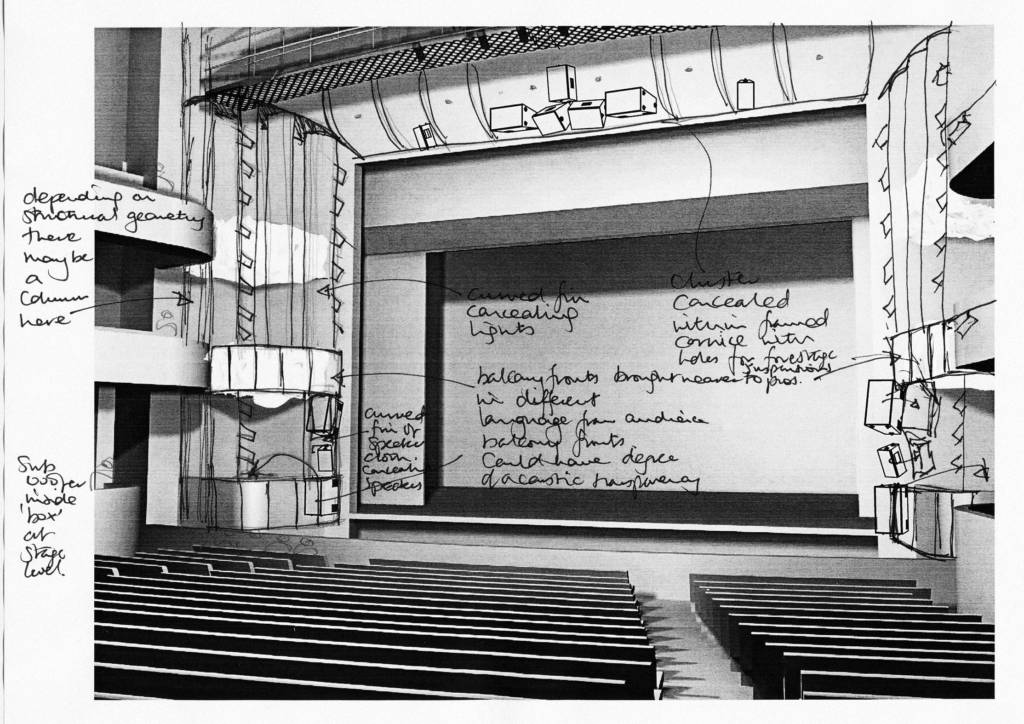 depending on
structural geometry
there
maybe
a
Column
here
curved fin
concealing
lights
cluster
concealed
within framed
cornice with
holes for forestage
suspensions
balcony fronts brought nearer to pros.
in different
language from audience
balcony fronts.
Could have degree
of acoustic transparency
curved
fin or
speaker
cloth.
concealing
speakers
Sub
woofer
inside
'box'
at
stage
level.